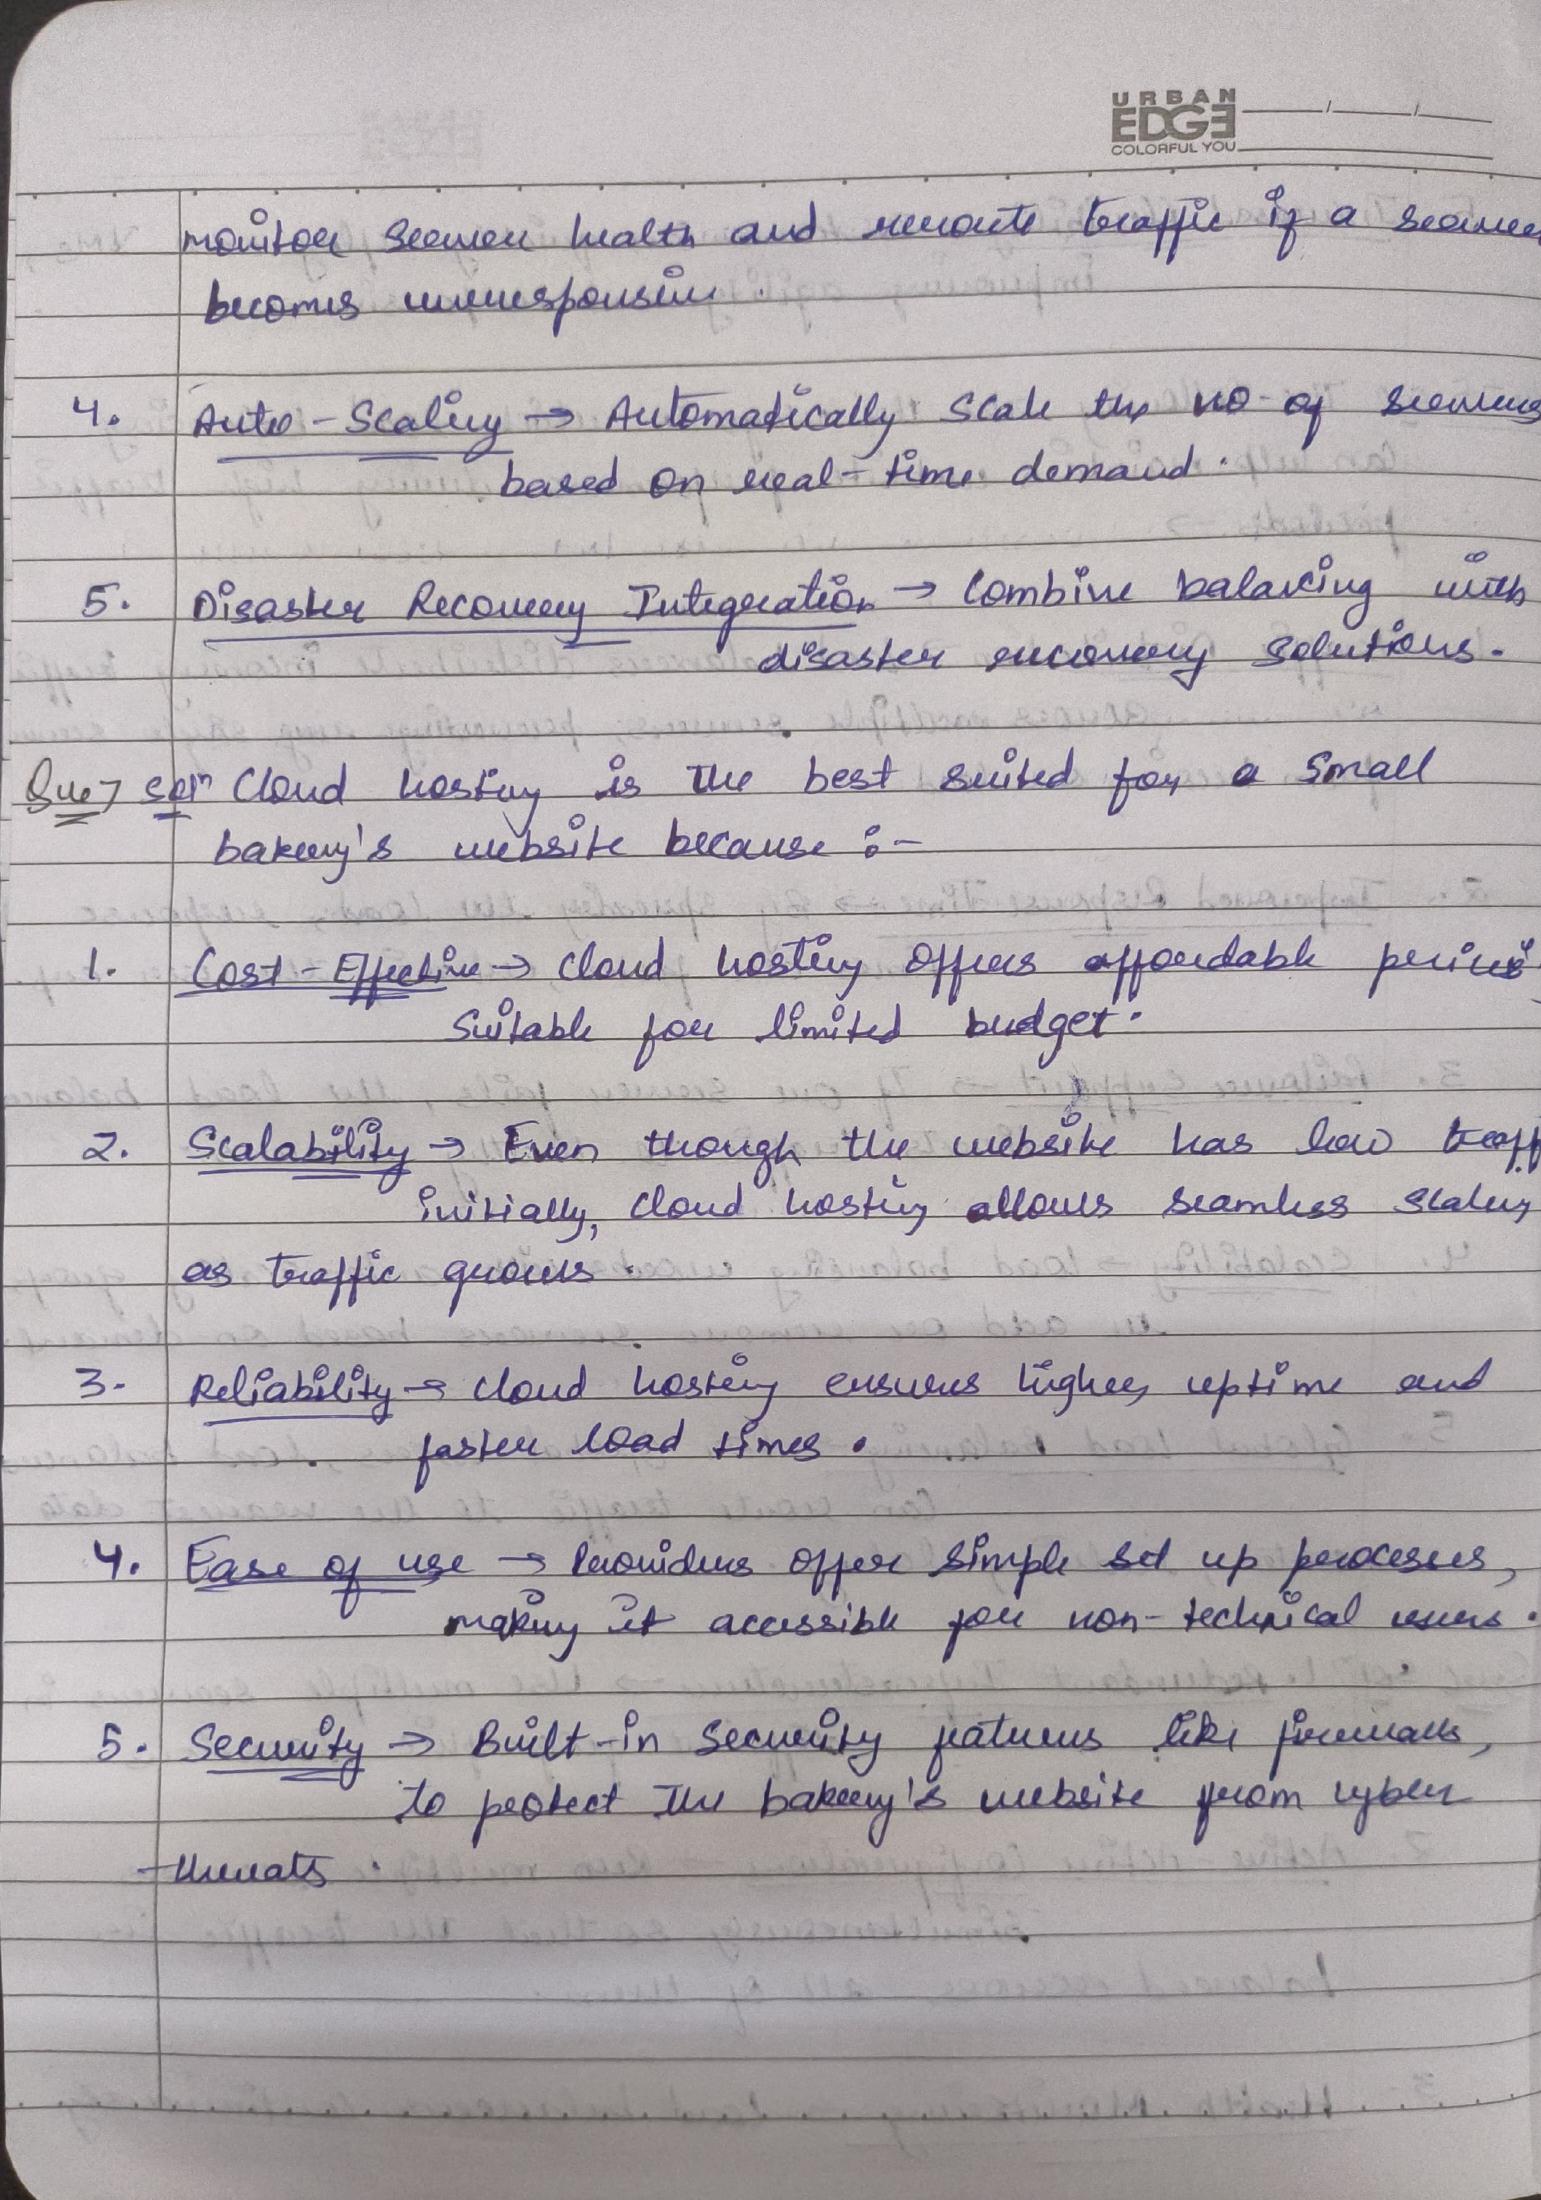 URBAN
EDGE
COLORFUL YOU
monitor server health and reroute traffic if a server
becomes unresponsive.
4. Auto-Scaling → Automatically scale the no. of servers
based on real-time demand.
5. Disaster Recovery Integration → Combine balancing with
disaster recovery solutions.
Que 7 Solⁿ Cloud hosting is the best suited for a small
bakery's website because :-
1. Cost-Effective → Cloud hosting offers affordable
suitable for limited budget.
2. Scalability → Even though the website has low traff
initially, cloud hosting allows seamless scaling
as traffic grows.
3. Reliability → Cloud hosting ensures higher uptime and
faster load times.
4. Ease of use → Providers offer simple set up processes,
making it accessible for non-technical users.
5. Security → Built-in security features like firewalls,
to protect the bakery's website from cyber
threats.